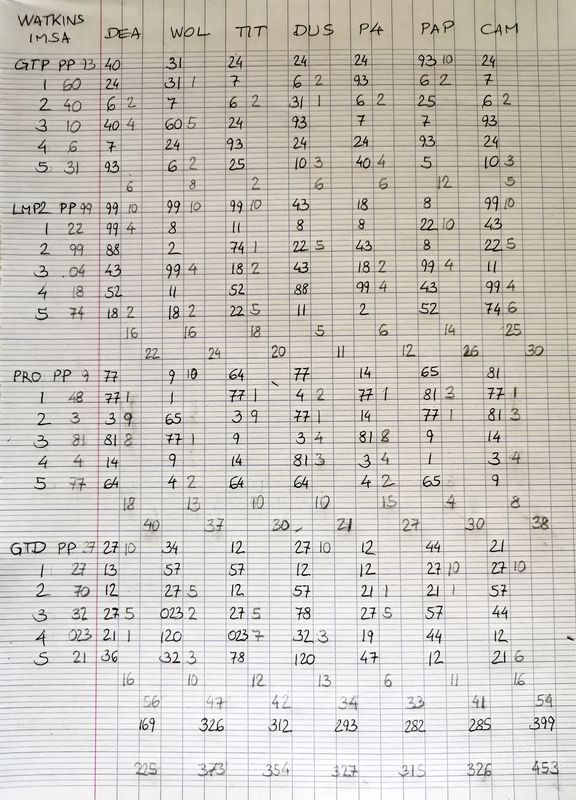 WATKINS
IMSA DEA WOL TIT DUS P4 PAP CAM
GTP PP 93 40 31 24 24 24 93 10 24
1 60 24 31 1 7 6 2 93 6 2 7
2 40 6 2 7 6 2 31 1 6 2 25 6 2
3 10 40 4 60 5 24 93 7 7 93
4 6 7 24 93 24 24 93 24
5 31 93 6 2 25 10 3 40 4 5 10 3
6 8 2 6 6 12 5
LMP2 PP 99 99 10 99 10 99 10 43 18 8 99 10
1 22 99 4 8 11 8 8 22 10 43
2 99 88 2 74 1 22 5 43 8 22 5
3 .04 43 99 4 18 2 43 18 2 99 4 11
4 18 52 11 52 88 99 4 43 99 4
5 74 18 2 18 2 22 5 11 2 52 74 6
16 16 18 5 6 14 25
22 24 20 11 12 26 30
PRO PP 9 77 9 10 64 77 14 65 81
1 48 77 1 1 77 1 4 2 77 1 81 3 77 1
2 3 3 9 65 3 9 77 1 14 77 1 81 3
3 81 81 8 77 1 9 3 4 81 8 9 14
4 4 14 9 14 81 3 3 4 1 3 4
5 77 64 4 2 64 64 4 2 65 9
18 13 10 10 15 4 8
40 37 30 21 27 30 38
GTD PP 27 27 10 34 12 27 10 12 44 21
1 27 13 57 57 12 12 27 10 27 10
2 70 12 27 5 12 57 21 1 21 1 57
3 32 27 5 023 2 27 5 78 27 5 57 44
4 023 21 1 120 023 7 32 3 19 44 12
5 21 36 32 3 78 120 47 12 21 6
16 10 12 13 6 11 16
56 47 42 34 33 41 54
169 326 312 293 282 285 399
225 373 354 327 315 326 453